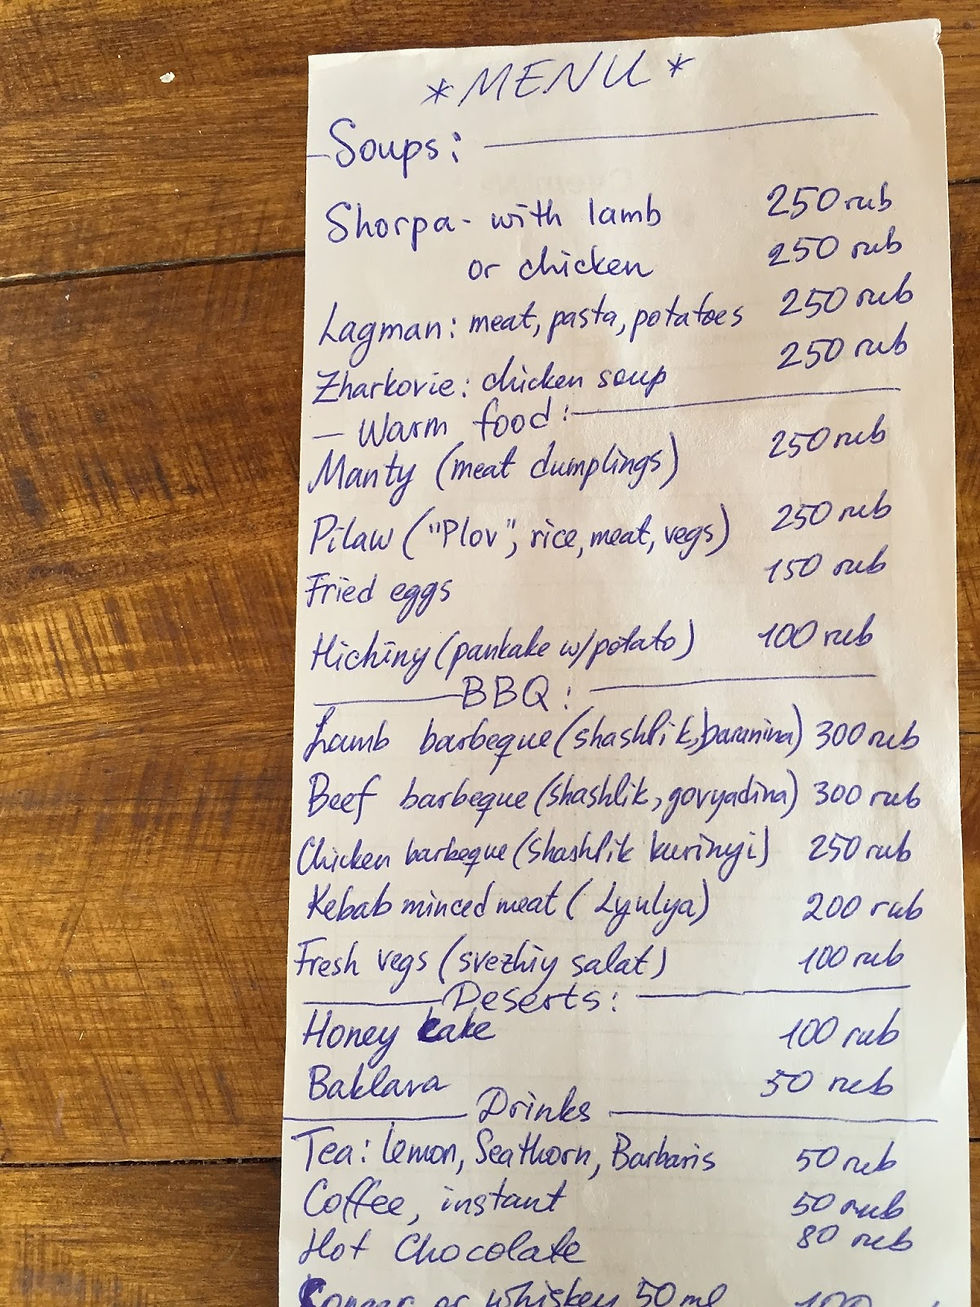 *MENU*
Soups:
Shorpa - with lamb 250 rub
or chicken 250 rub
Lagman: meat, pasta, potatoes 250 rub
Zharkovie: chicken soup 250 rub
— Warm food:
Manty (meat dumplings) 250 rub
Pilaw ("Plov", rice, meat, vegs) 250 rub
Fried eggs 150 rub
Hichiny (pankake w/potato) 100 rub
BBQ:
Lamb barbeque (shashlik, baranina) 300 rub
Beef barbeque (shashlik, govyadina) 300 rub
Chicken barbeque (shashlik kurinyi) 250 rub
Kebab minced meat (Lyulya) 200 rub
Fresh vegs (svezhiy salat) 100 rub
Deserts:
Honey cake 100 rub
Baklava 50 rub
Drinks
Tea: lemon, Seathorn, Barbaris 50 rub
Coffee, instant 50 rub
Hot Chocolate 80 rub
or whiskey 50 ml 100